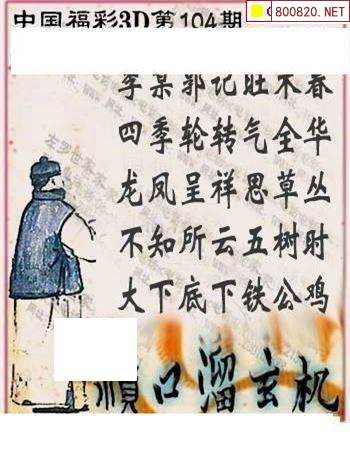 中国福彩3D第104期
800820.NET
李某郭记旺木春
四季轮转气全华
龙凤呈祥思草丛
不知所云五树时
大下底下铁公鸡
顺口溜玄机